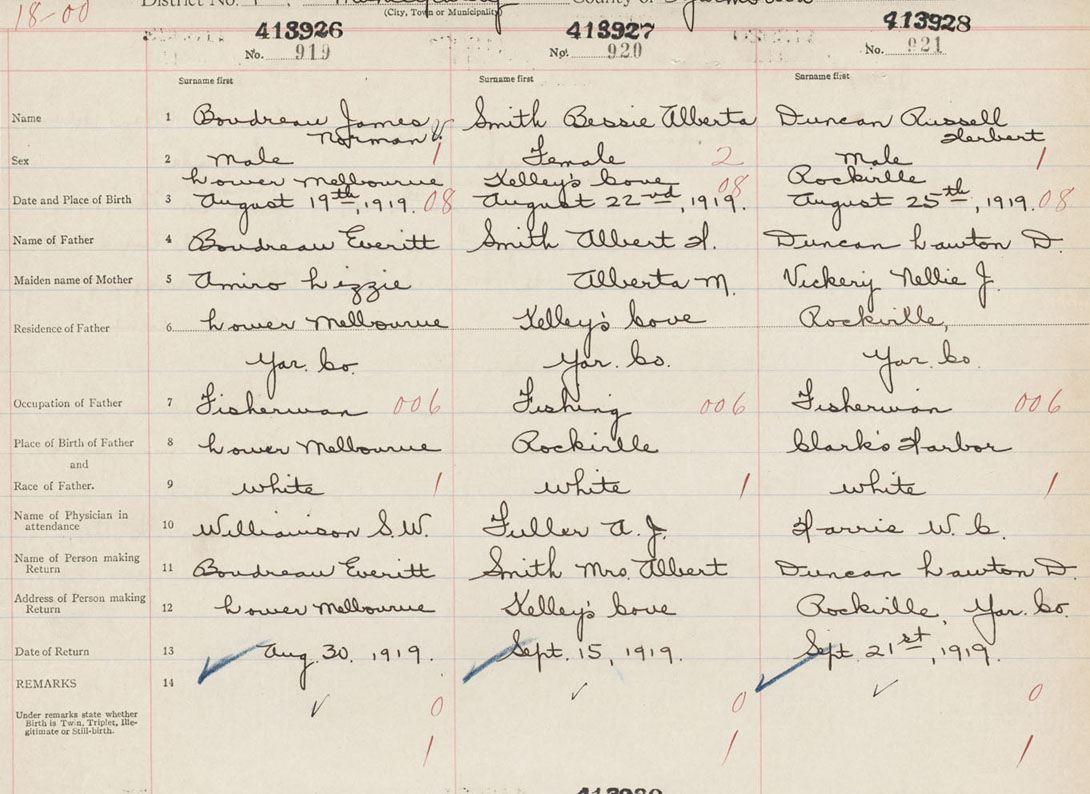 18-00 District No. 1, Municipality County of Yarmouth
(City, Town or Municipality)
413926 413927 413928
No. 919 No. 920 No. 921
Surname first Surname first Surname first
Name 1 Boudreau James Smith Bessie Alberta Duncan Russell
Norman Herbert
Sex 2 Male 1 Female 2 Male 1
Lower Melbourne Kelley's Cove Rockville
Date and Place of Birth 3 August 19th, 1919. 08 August 22nd, 1919. 08 August 25th, 1919. 08
Name of Father 4 Boudreau Everitt Smith Albert H. Duncan Lawton D.
Maiden name of Mother 5 Amiro Lizzie Alberta M. Vickery Nellie J.
Residence of Father 6 Lower Melbourne Kelley's Cove Rockville,
Yar. Co. Yar. Co. Yar. Co.
Occupation of Father 7 Fisherman 006 Fishing 006 Fisherman 006
Place of Birth of Father 8 Lower Melbourne Rockville Clark's Harbor
and
Race of Father. 9 White 1 White 1 White 1
Name of Physician in
attendance 10 Williamson S.W. Fuller A. J. Harris W. C.
Name of Person making
Return 11 Boudreau Everitt Smith Mrs. Albert Duncan Lawton D.
Address of Person making
Return 12 Lower Melbourne Kelley's Cove Rockville, Yar. Co.
Date of Return 13 Aug. 30, 1919. Sept. 15, 1919. Sept. 21st, 1919.
REMARKS 14
0 0 0
Under remarks state whether
Birth is Twin, Triplet, Ille-
gitimate or Still-birth.
1 1 1